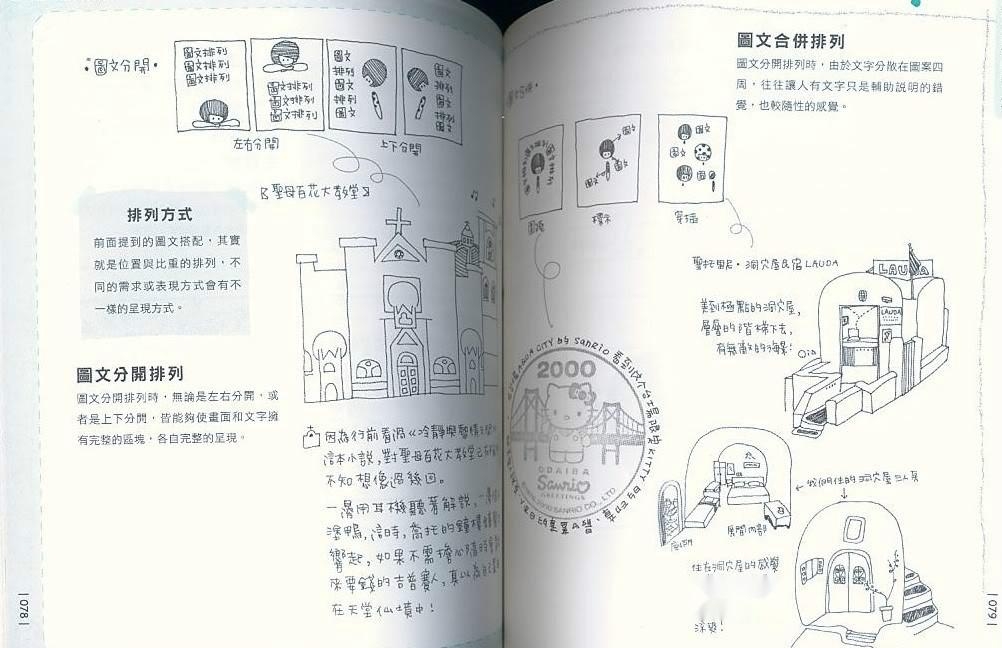 圖文分開
圖文排列
圖文排列
圖文排列
圖文排列
圖文排列
圖文排列
圖文
排列
圖文
排列
圖文
圖文
排列
圖文
排列
圖文
左右分開
上下分開
聖母百花大教堂
排列方式
前面提到的圖文搭配，其實
就是位置與比重的排列，不
同的需求或表現方式會有不
一樣的呈現方式。
圖文分開排列
圖文分開排列時，無論是左右分開，或
者是上下分開，皆能夠使畫面和文字擁
有完整的區塊，各自完整的呈現。
因為行前看過《冷靜與熱情之間》
這本小說，對聖母百花大教堂已
不知想像過幾回。
一邊用耳機聽著解說，一邊
塗鴨，這時，喬托的鐘樓
響起，如果不需擔心隨時會
來要錢的吉普賽人，真以為自己
在天堂仙境中！
|078|
圖文合併排列
圖文分開排列時，由於文字分散在圖案四
周，往往讓人有文字只是輔助說明的錯
覺，也較隨性的感覺。
圖文
圖文
圖文
圖文
圖文
圖
圍繞
標示
穿插
聖托里尼·洞穴屋民宿LAUDA
LAUDA
LAUDA
美到極點的洞穴屋，
層層的階梯下去，
有無敵的海景！
Oia
AQUA CITY by Sanrio
2000
ODAIBA
Sanrio
GREETINGS
SANRIO CO., LTD
KITTY
← 我們住的洞穴屋三人房
房間內部
住在洞穴屋的感覺
涼爽！
|079|